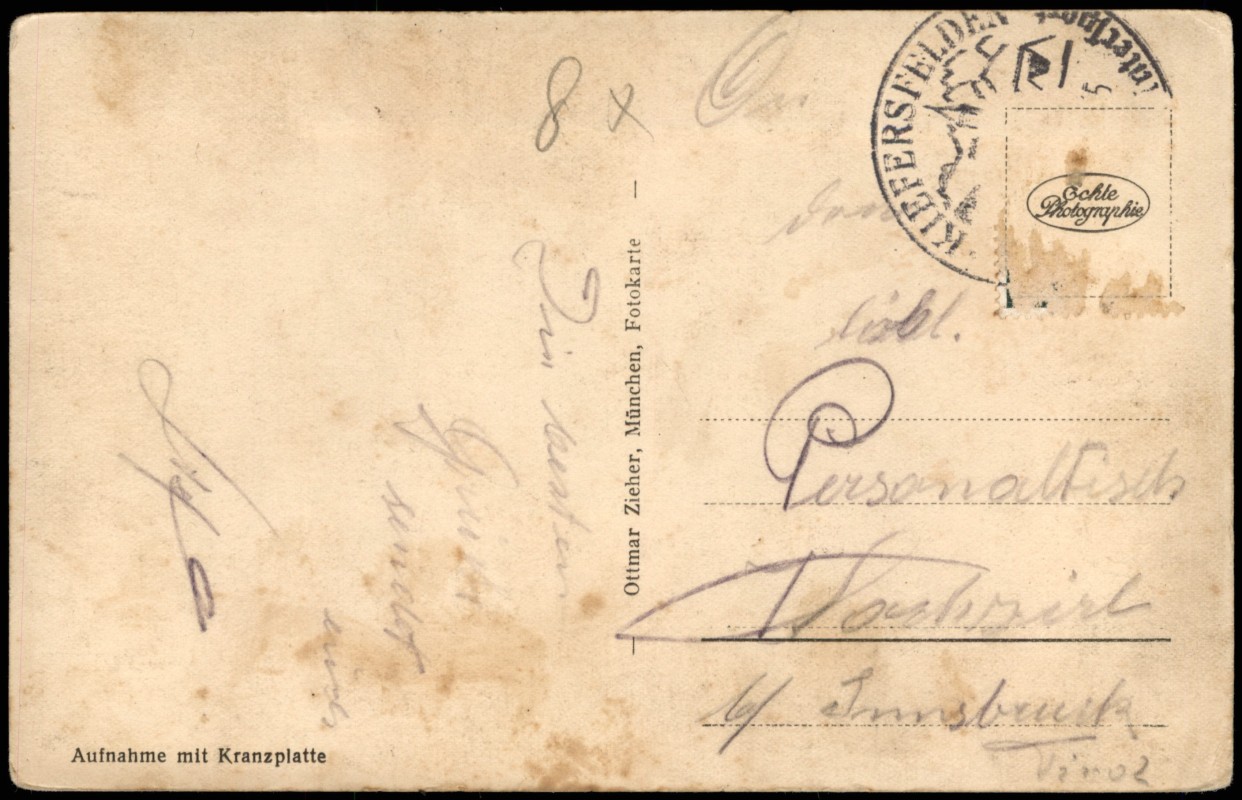 8 x
An
den
löbl.
Personaltisch
b/ Innsbruck
Tirol
Die besten
Grüße
sendet
euch
KIEFERSFELDEN
Wintersport
Echte
Photographie
Ottmar Zieher, München, Fotokarte
Aufnahme mit Kranzplatte